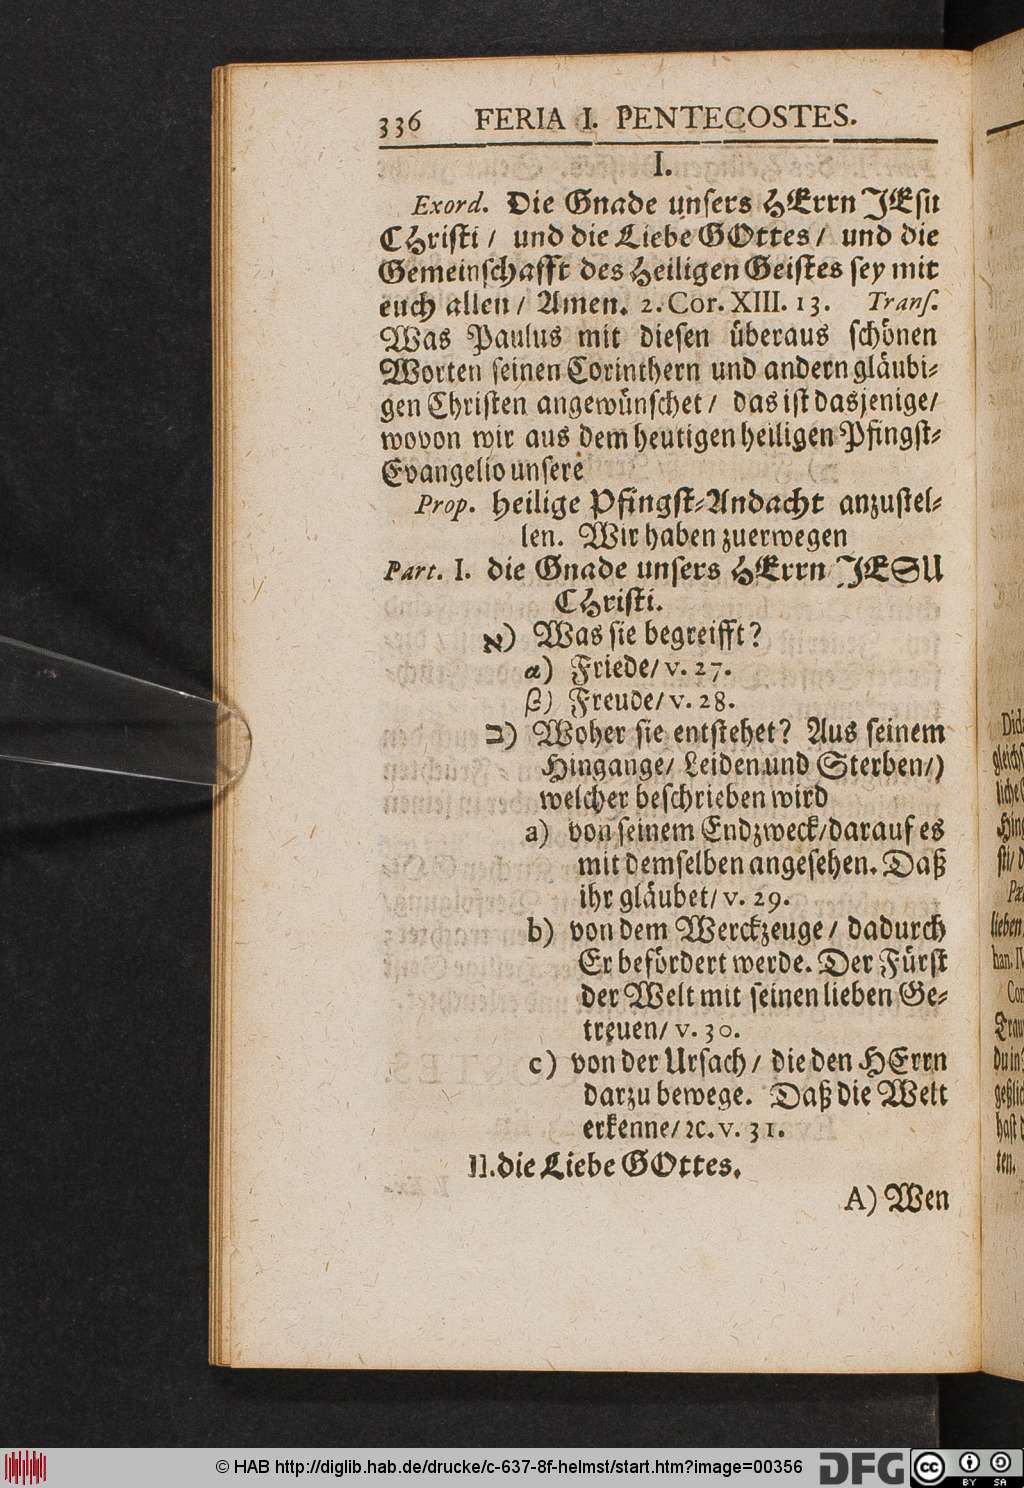 336 FERIA I. PENTECOSTES.
I.
Exord. Die Gnade unsers HErrn JEsu
CHristi / und die Liebe GOttes / und die
Gemeinschafft des Heiligen Geistes sey mit
euch allen / Amen. 2. Cor. XIII. 13. Trans.
Was Paulus mit diesen überaus schönen
Worten seinen Corinthern und andern gläubi-
gen Christen angewünschet / das ist dasjenige /
wovon wir aus dem heutigen heiligen Pfingst-
Evangelio unsere
Prop. heilige Pfingst-Andacht anzustel-
len. Wir haben zuerwegen
Part. I. die Gnade unsers HErrn JESU
CHristi.
א) Was sie begreifft?
α) Friede / v. 27.
β) Freude / v. 28.
ב) Woher sie entstehet? Aus seinem
Hingange / Leiden und Sterben /)
welcher beschrieben wird
a) von seinem Endzweck / darauf es
mit demselben angesehen. Daß
ihr gläubet / v. 29.
b) von dem Werckzeuge / dadurch
Er befördert werde. Der Fürst
der Welt mit seinen lieben Ge-
treuen / v. 30.
c) von der Ursach / die den HErrn
darzu bewege. Daß die Welt
erkenne / ꝛc. v. 31.
II. die Liebe GOttes.
A) Wen
gleichs
liche
Hin
sti /
lieben
han. IV
Cor
Trau
du in
geßlic
hast d
ten.
© HAB http://diglib.hab.de/drucke/c-637-8f-helmst/start.htm?image=00356
DFG
cc BY SA